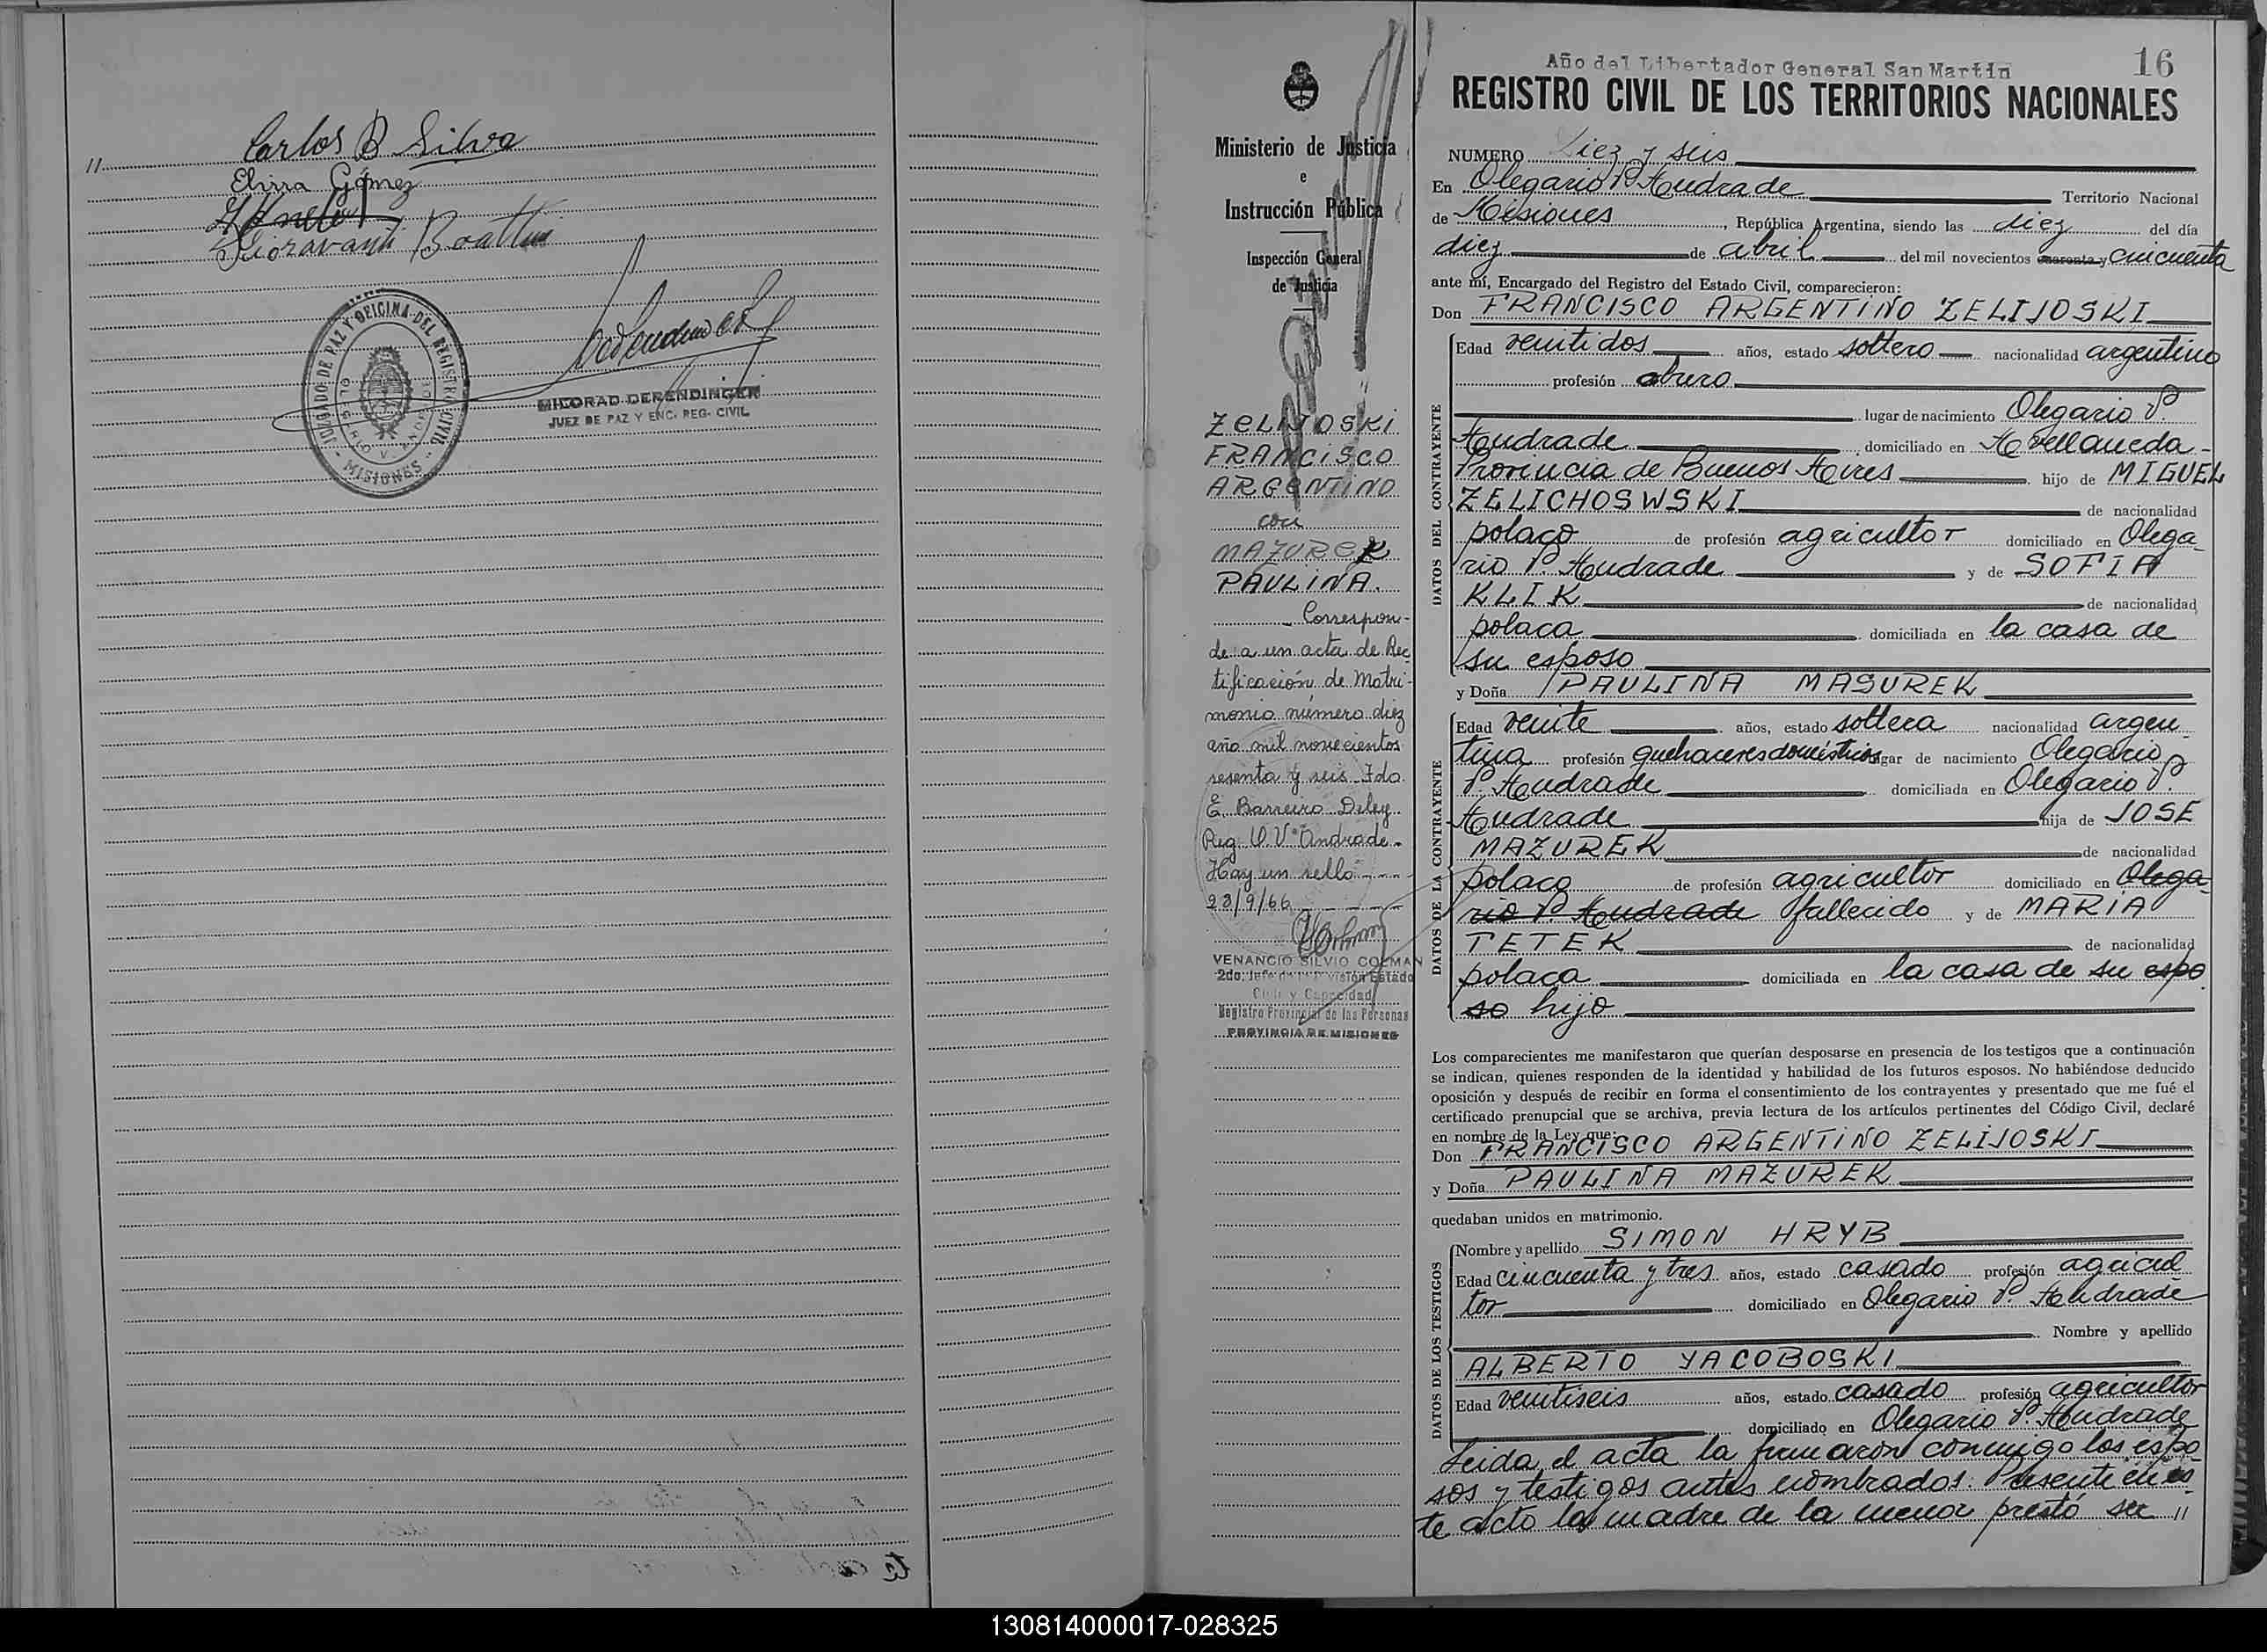 Carlos B Silva
Elirra Gómez
Fioravanti Boattini
JUZGADO DE PAZ Y OFICINA DEL REGISTRO CIVIL
MISIONES
MILORAD DERENDINGER
JUEZ DE PAZ Y ENC. REG. CIVIL
Ministerio de Justicia
e
Instrucción Pública
Inspección General
de Justicia
ZELIJOSKI
FRANCISCO
ARGENTINO
con
MAZUREK
PAULINA.
Correspon-
de a un acta de Rec
tificación de Matri-
monio número diez
año mil novecientos
sesenta y seis Fdo.
E. Barreiro Deley
Reg. O. V. Andrade.
Hay un sello
23/9/66
VENANCIO SILVIO COLMAN
2do. Jefe División Estado
Civil y Capacidad
Registro Provincial de las Personas
PROVINCIA DE MISIONES
Año del Libertador General San Martín
16
REGISTRO CIVIL DE LOS TERRITORIOS NACIONALES
NUMERO Diez y seis
En Olegario V. Andrade Territorio Nacional
de Misiones, República Argentina, siendo las diez del día
diez de abril del mil novecientos cuarenta y cincuenta
ante mí, Encargado del Registro del Estado Civil, comparecieron:
Don FRANCISCO ARGENTINO ZELIJOSKI
DATOS DEL CONTRAYENTE
Edad veintidos años, estado soltero nacionalidad argentino
profesión obrero
lugar de nacimiento Olegario V.
Andrade domiciliado en Avellaneda-
Provincia de Buenos Aires hijo de MIGUEL
ZELICHOSWSKI de nacionalidad
polaco de profesión agricultor domiciliado en Olega-
rio V. Andrade y de SOFIA
KLIK de nacionalidad
polaca domiciliada en la casa de
su esposo
y Doña PAULINA MASUREK
DATOS DE LA CONTRAYENTE
Edad veinte años, estado soltera nacionalidad argen-
tina profesión quehaceres domésticos lugar de nacimiento Olegario
V. Andrade domiciliada en Olegario V.
Andrade hija de JOSE
MAZUREK de nacionalidad
polaco de profesión agricultor domiciliado en Olega-
rio V. Andrade fallecido y de MARIA
TETEK de nacionalidad
polaca domiciliada en la casa de su espo
so hijo
Los comparecientes me manifestaron que querían desposarse en presencia de los testigos que a continuación
se indican, quienes responden de la identidad y habilidad de los futuros esposos. No habiéndose deducido
oposición y después de recibir en forma el consentimiento de los contrayentes y presentado que me fué el
certificado prenupcial que se archiva, previa lectura de los artículos pertinentes del Código Civil, declaré
en nombre de la Ley que:
Don FRANCISCO ARGENTINO ZELIJOSKI
y Doña PAULINA MAZUREK
quedaban unidos en matrimonio.
DATOS DE LOS TESTIGOS
Nombre y apellido SIMON HRYB
Edad cincuenta y tres años, estado casado profesión agricul
tor domiciliado en Olegario V. Andrade
Nombre y apellido
ALBERTO YACOBOSKI
Edad veintiseis años, estado casado profesión agricultor
domiciliado en Olegario V. Andrade
Leida el acta la firmaron conmigo los espo-
sos y testigos antes nombrados. Presente en es-
te acto la madre de la menor prestó su //
130814000017-028325